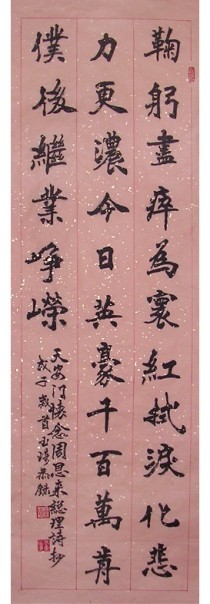 鞠躬盡瘁為寰紅拭淚化悲
力更濃今日英豪千百萬前
僕後繼業崢嶸
天安门懷念周恩来總理詩抄
戊子歲首